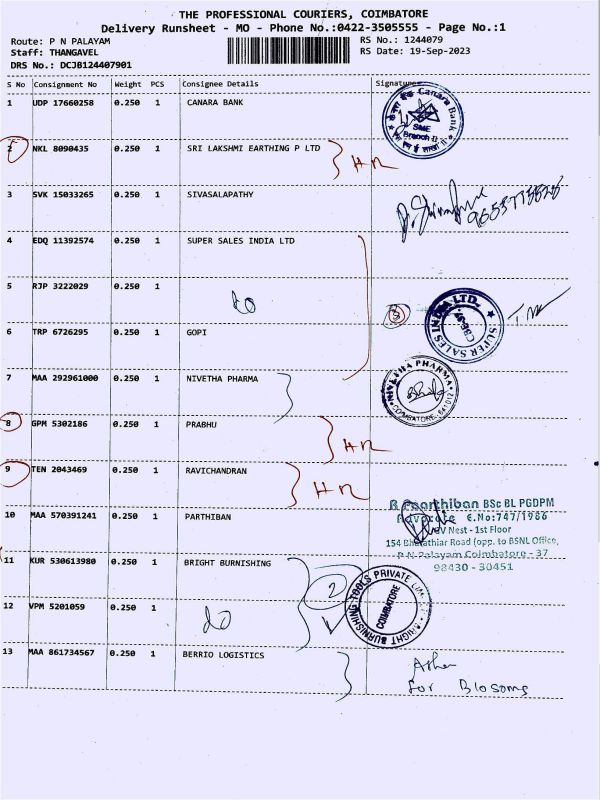 THE PROFESSIONAL COURIERS, COIMBATORE
Delivery Runsheet - MO - Phone No.:0422-3505555 - Page No.:1
Route: P N PALAYAM
Staff: THANGAVEL
DRS No.: DCJB124407901
RS No.: 1244079
RS Date: 19-Sep-2023
S No Consignment No Weight PCS Consignee Details Signature
1 UDP 17660258 0.250 1 CANARA BANK
Canara Bank
SME
Branch
2 NKL 8090435 0.250 1 SRI LAKSHMI EARTHING P LTD
3 SVK 15033265 0.250 1 SIVASALAPATHY
4 EDQ 11392574 0.250 1 SUPER SALES INDIA LTD
5 RJP 3222029 0.250 1 do
SUPER SALES INDIA LTD.
CBE-49
6 TRP 6726295 0.250 1 GOPI
7 MAA 292961000 0.250 1 NIVETHA PHARMA
NIVETHA PHARMA
COIMBATORE, 641012
8 GPM 5302186 0.250 1 PRABHU
9 TEN 2043469 0.250 1 RAVICHANDRAN
10 MAA 570391241 0.250 1 PARTHIBAN
R Paarthiban BSc BL PGDPM
Advocate E.No:747/1986
Nest - 1st Floor
154 Bharathiar Road (opp. to BSNL Office,
P N Palayam Coimbatore - 37
98430 - 30451
11 KUR 530613980 0.250 1 BRIGHT BURNISHING
2
BRIGHT BURNISHING TOOLS PRIVATE
COIMBATORE
12 VPM 5201059 0.250 1 do
13 MAA 861734567 0.250 1 BERRIO LOGISTICS
for Blosoms